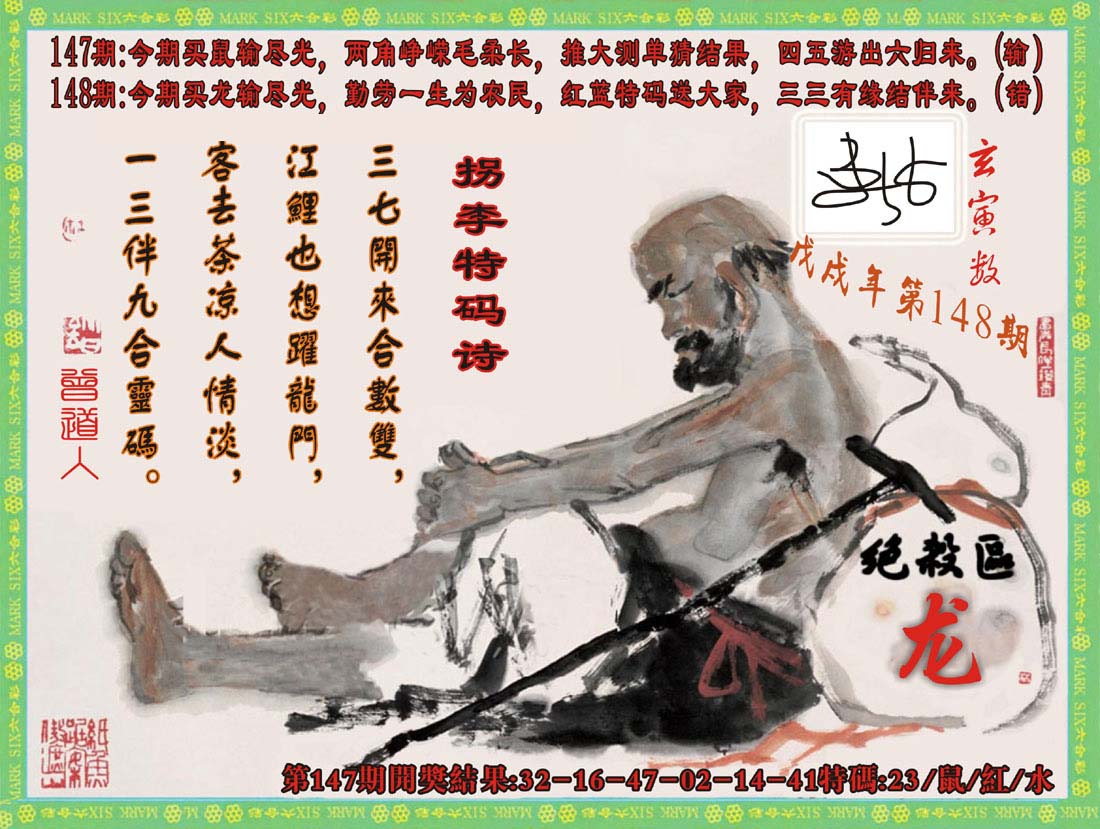 MARK SIX六合彩
147期:今期买鼠输尽光，两角峥嵘毛柔长，推大测单猜结果，四五游出六归来。(输)
148期:今期买龙输尽光，勤劳一生为农民，红蓝特码送大家，三三有缘结伴来。(错)
玄寅数
戊戌年第148期
拐李特码诗
三七開來合數雙，
江鯉也想躍龍門，
客去茶凉人情淡，
一三伴九合靈碼。
曾道人
绝殺區
龙
第147期開獎結果:32-16-47-02-14-41特碼:23/鼠/紅/水